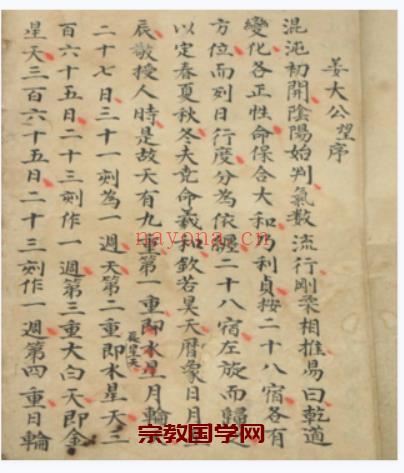 姜大公望序
混沌初開陰陽始判氣數流行剛柔相推易曰乾道
變化各正性命保合大和乃利貞按二十八宿各有
方位而列日行度分為依纏二十八宿左旋而歸
以定春夏秋冬夫堯命羲和欽若昊天曆象日月星
辰敬授人時是故天有九重第一重即水星月輪
辰星天
二十七日三十一刻為一週天第二重即水星天三
百六十五日二十三刻作一週第三重大白天即金
星天三百六十五日二十三刻作一週第四重日輪
nayona.cn
宗教国学网